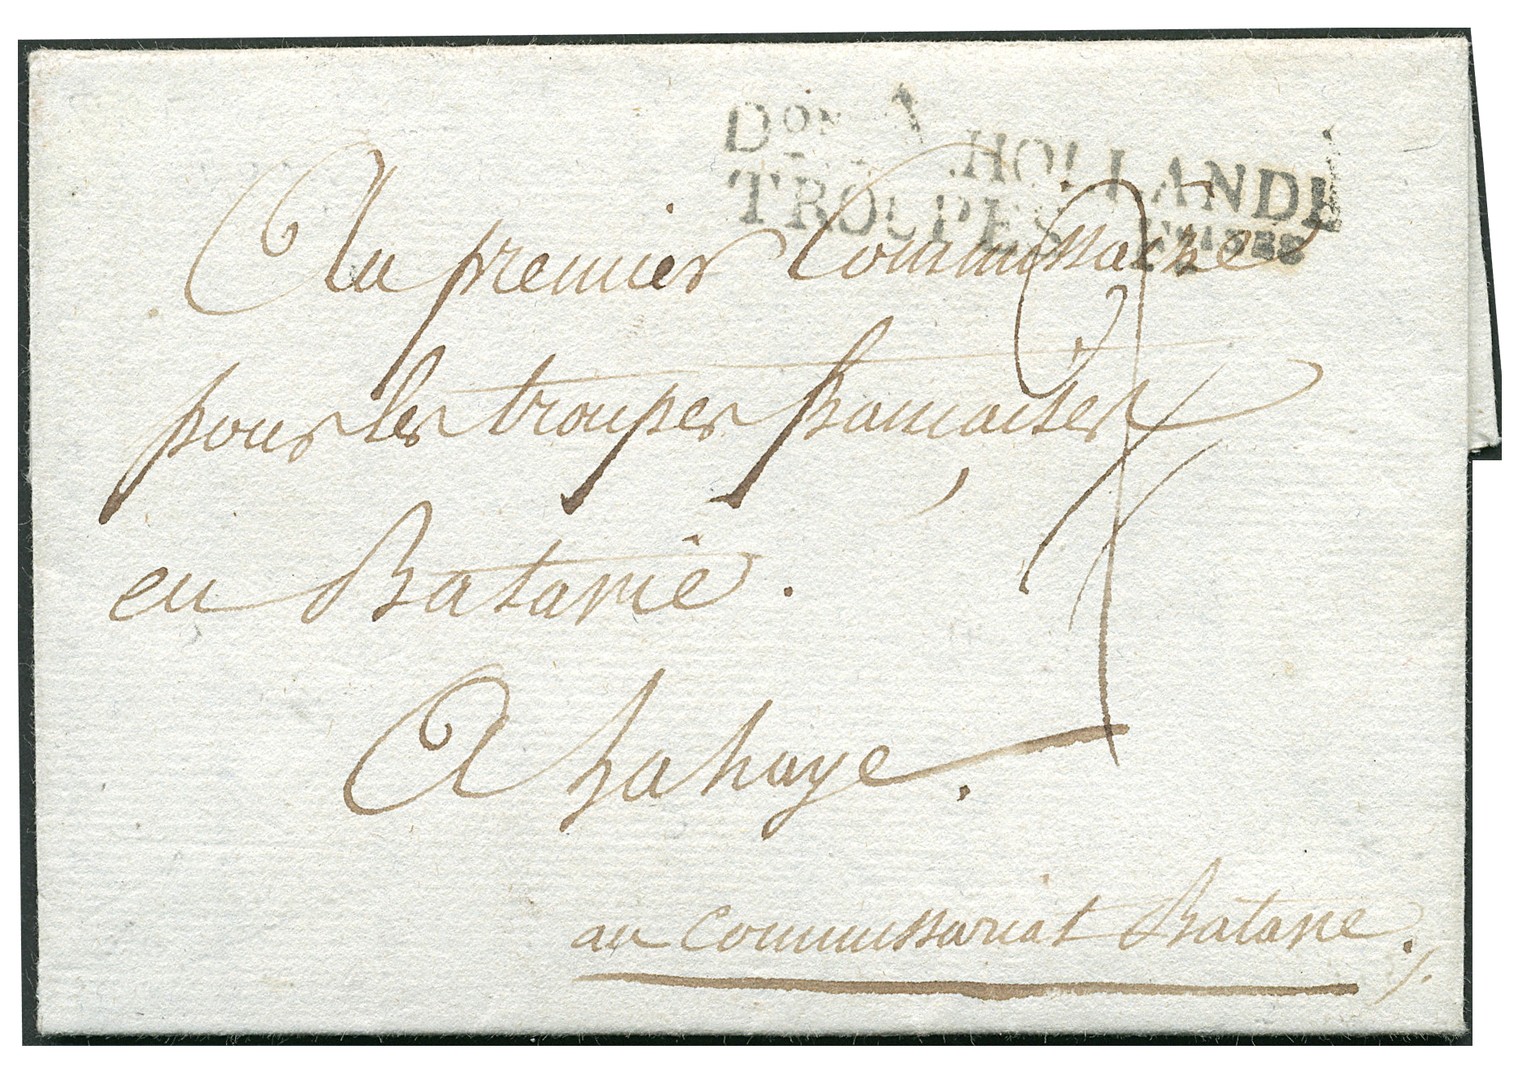 Don A HOLLANDE
TROUPES
Au premier Commissaire
pour les troupes francaises
en Batavie.
A la haye.
au commissariat Batave.